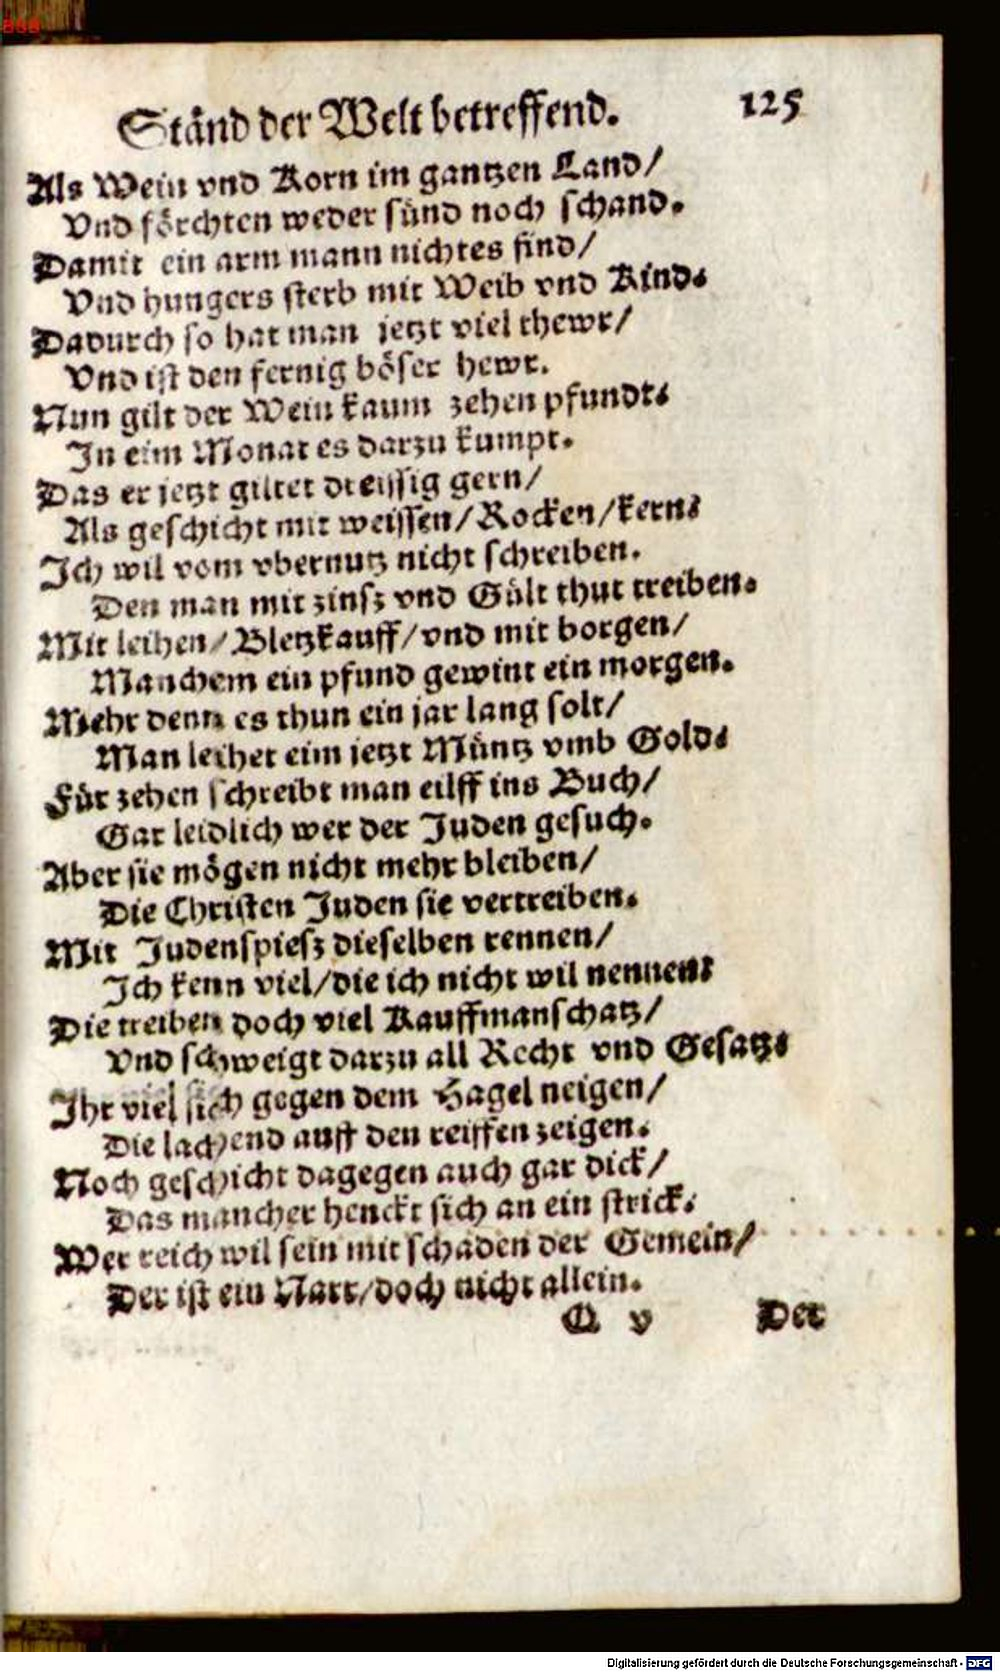 BSB
Ständ der Welt betreffend. 125
Als Wein vnd Korn im gantzen Land/
Vnd förchten weder sünd noch schand.
Damit ein arm mann nichtes find/
Vnd hungers sterb mit Weib vnd Kind.
Dadurch so hat man jetzt viel thewr/
Vnd ist den fernig böser hewr.
Nun gilt der Wein kaum zehen pfundt:
In eim Monat es darzu kumpt.
Das er jetzt giltet dreissig gern/
Als geschicht mit weissen/Rocken/kern:
Ich wil vom vbernutz nicht schreiben.
Den man mit zinsz vnd Gült thut treiben.
Mit leihen/Bletzkauff/vnd mit borgen/
Manchem ein pfund gewint ein morgen.
Mehr denn es thun ein jar lang solt/
Man leihet eim jetzt Müntz vmb Gold:
Für zehen schreibt man eilff ins Buch/
Gar leidlich wer der Juden gesuch.
Aber sie mögen nicht mehr bleiben/
Die Christen Juden sie vertreiben.
Mit Judenspiesz dieselben rennen/
Ich kenn viel/die ich nicht wil nennen:
Die treiben doch viel Kauffmanschatz/
Vnd schweigt darzu all Recht vnd Gesatz:
Ihr viel sich gegen dem Hagel neigen/
Die lachend auff den reiffen zeigen.
Noch geschicht dagegen auch gar dick/
Das mancher henckt sich an ein strick:
Wer reich wil sein mit schaden der Gemein/
Der ist ein Narr/doch nicht allein.
Q v Der
Digitalisierung gefördert durch die Deutsche Forschungsgemeinschaft - DFG